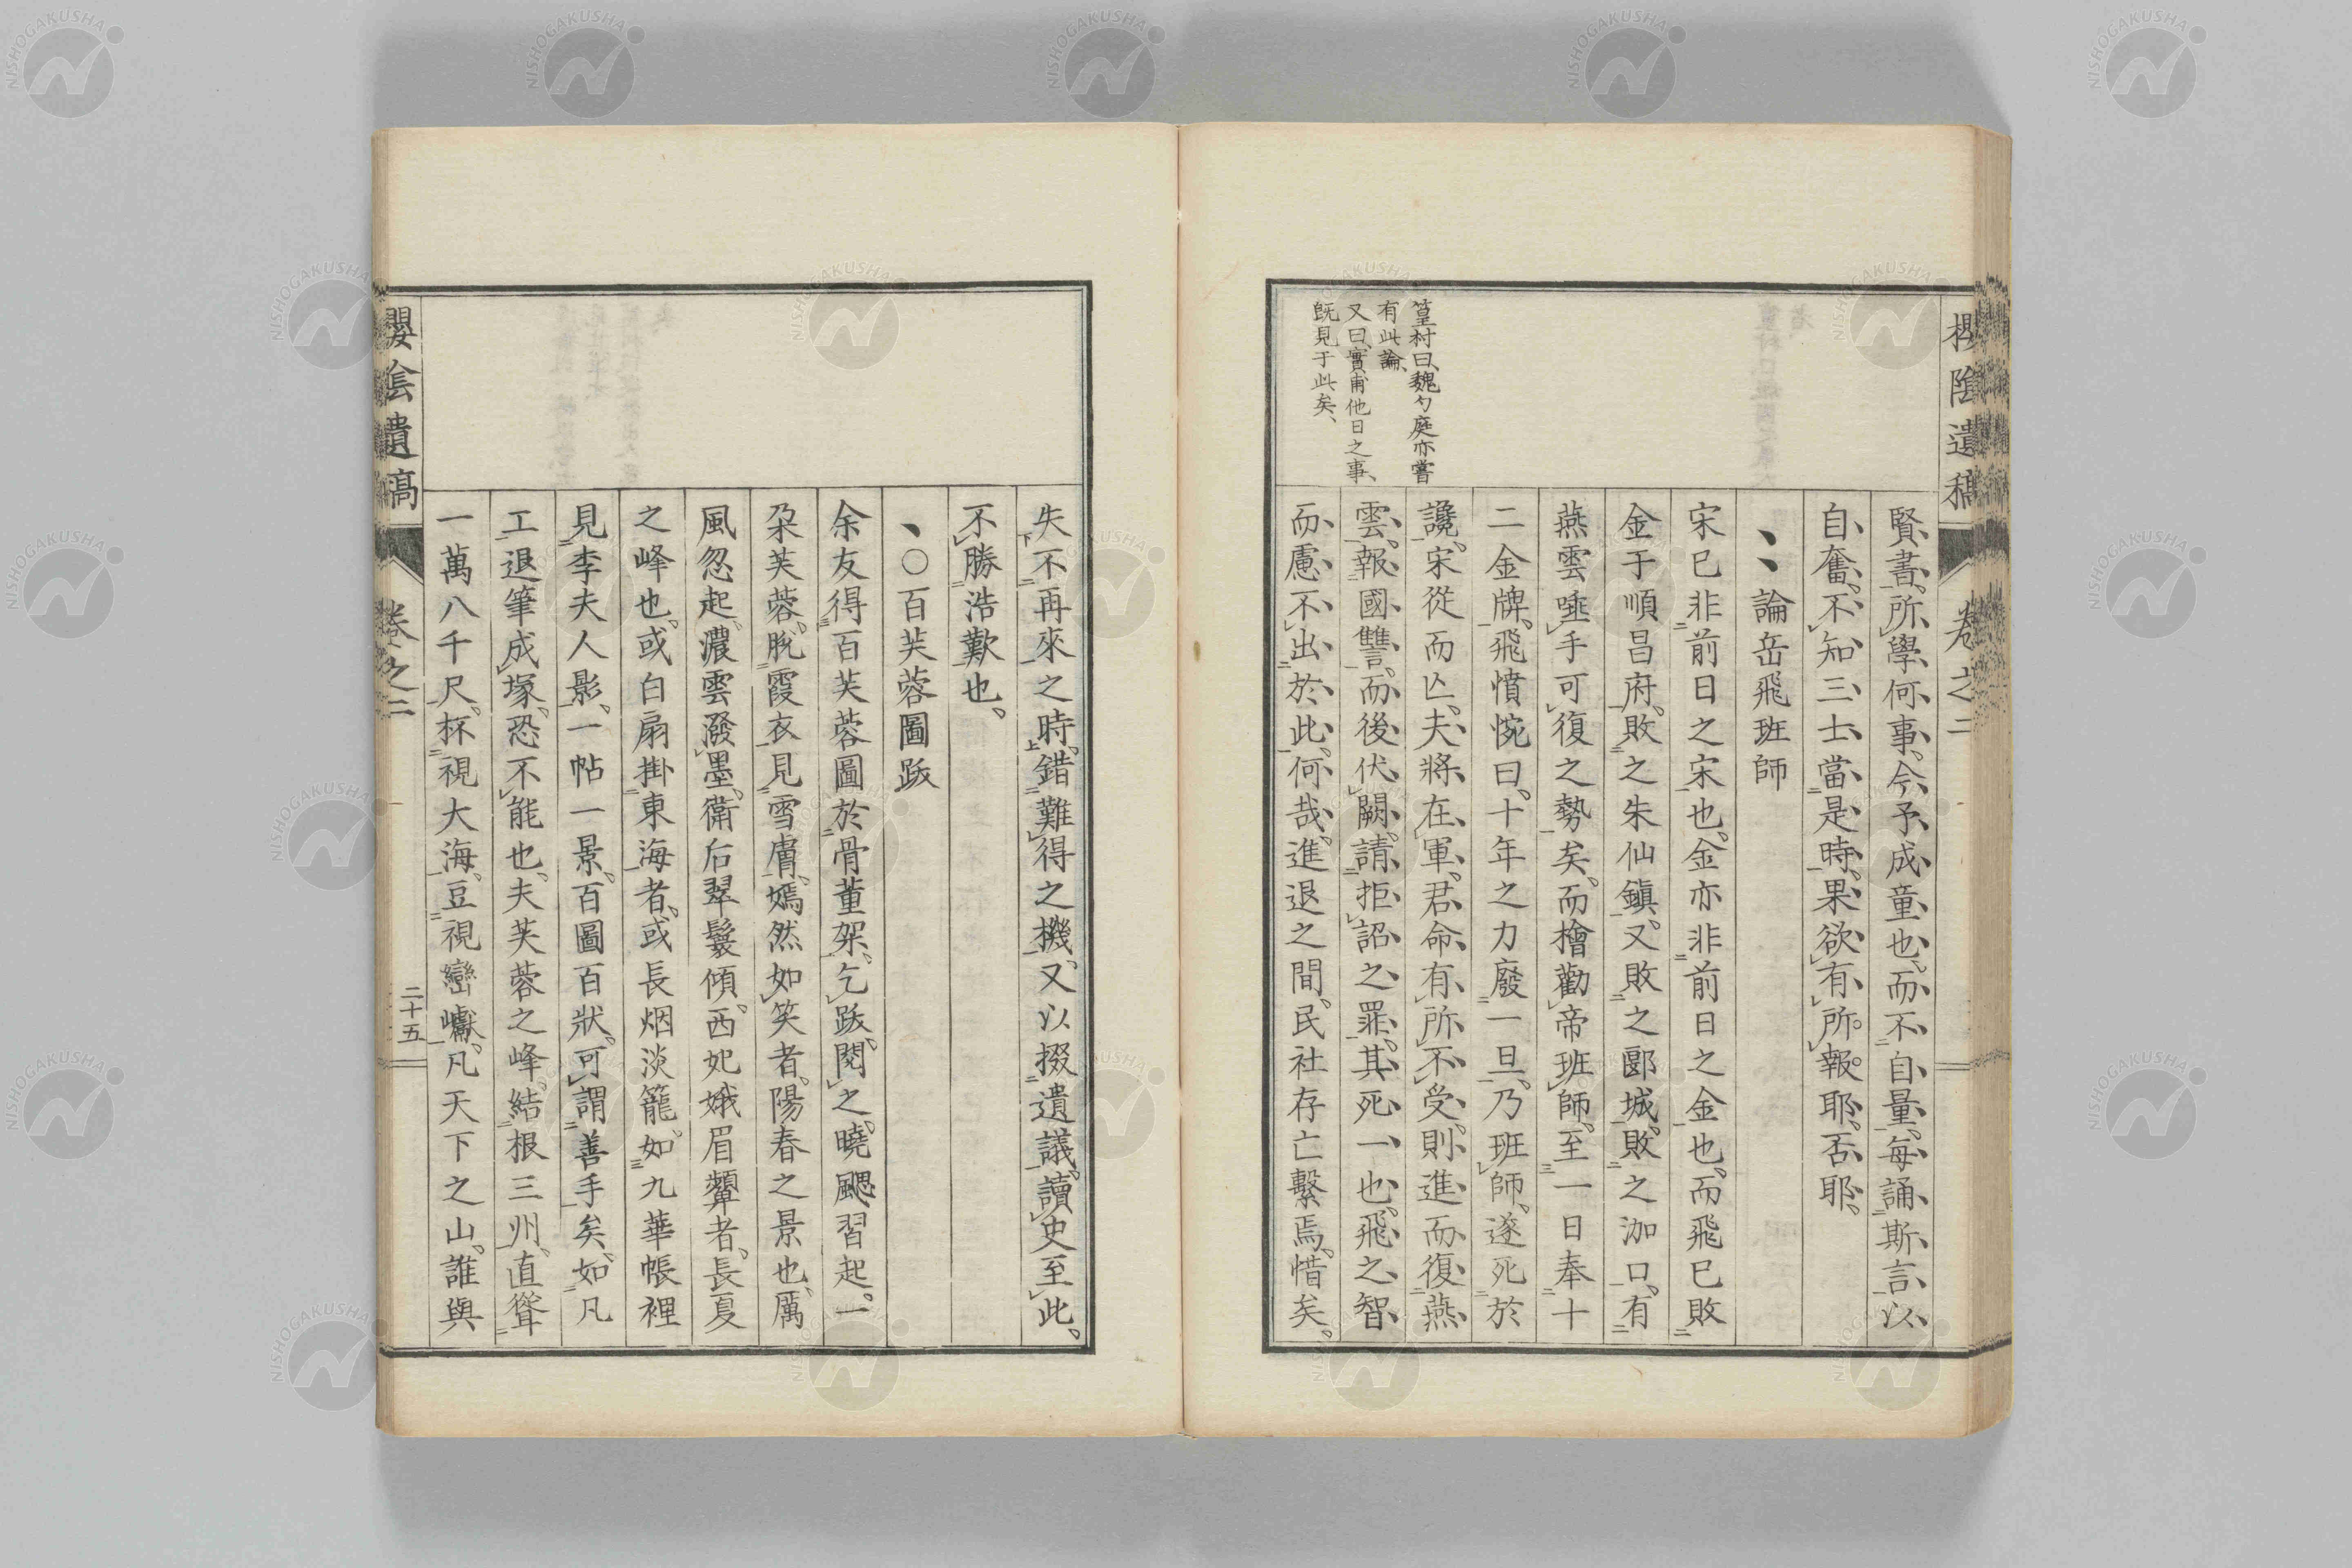 櫻陰遺稿 卷之二
賢書、所學何事、今予成童也、而不自量、每誦斯言、以
自奮、不知三士當是時、果欲有所報耶、否耶、
論岳飛班師
宋已非前日之宋也、金亦非前日之金也、而飛已敗
金于順昌府、敗之朱仙鎮、又敗之郾城、敗之泇口、有
燕雲唾手可復之勢矣、而檜勸帝班師、至一日奉十
二金牌、飛憤惋曰、十年之力廢一旦、乃班師、遂死於
讒、宋從而亾、夫將在軍、君命有所不受、則進而復燕
雲、報國讐、而後伏闕、請拒詔之罪、其死一也、飛之智
而慮不出於此、何哉、進退之間、民社存亡繫焉、惜矣、
篁村曰、魏勺庭亦嘗
有此論、
又曰、實甫他日之事、
既見于此矣、
失不再來之時、錯難得之機、又以掇遺議、讀史至此、
不勝浩歎也、
○百芙蓉圖跋
余友得百芙蓉圖於骨董架、乞跋、閱之、曉颸習起、一
朶芙蓉、脫霞衣見雪膚、嫣然如笑者、陽春之景也、厲
風忽起、濃雲潑墨、衛后翠鬟傾、西妃娥眉顰者、長夏
之峰也、或白扇掛東海者、或長烟淡籠、如九華帳裡
見李夫人影、一帖一景、百圖百狀、可謂善手矣、如凡
工退筆成塚、恐不能也、夫芙蓉之峰結根三州、直聳
一萬八千尺、杯視大海、豆視巒巘、凡天下之山、誰與
櫻陰遺稿 卷之二 二十五